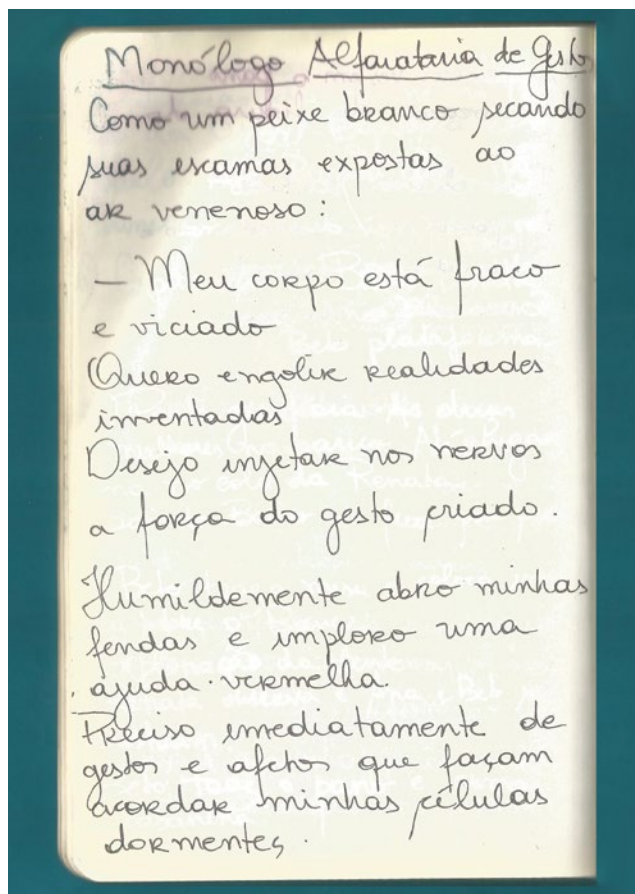 Monólogo Alfaiataria de Gesto
Como um peixe branco secando
suas escamas expostas ao
ar venenoso:
— Meu corpo está fraco
e viciado
Quero engolir realidades
inventadas
Desejo injetar nos nervos
a força do gesto criado.
Humildemente abro minhas
fendas e imploro uma
ajuda vermelha.
Preciso imediatamente de
gestos e afetos que façam
acordar minhas células
dormentes.